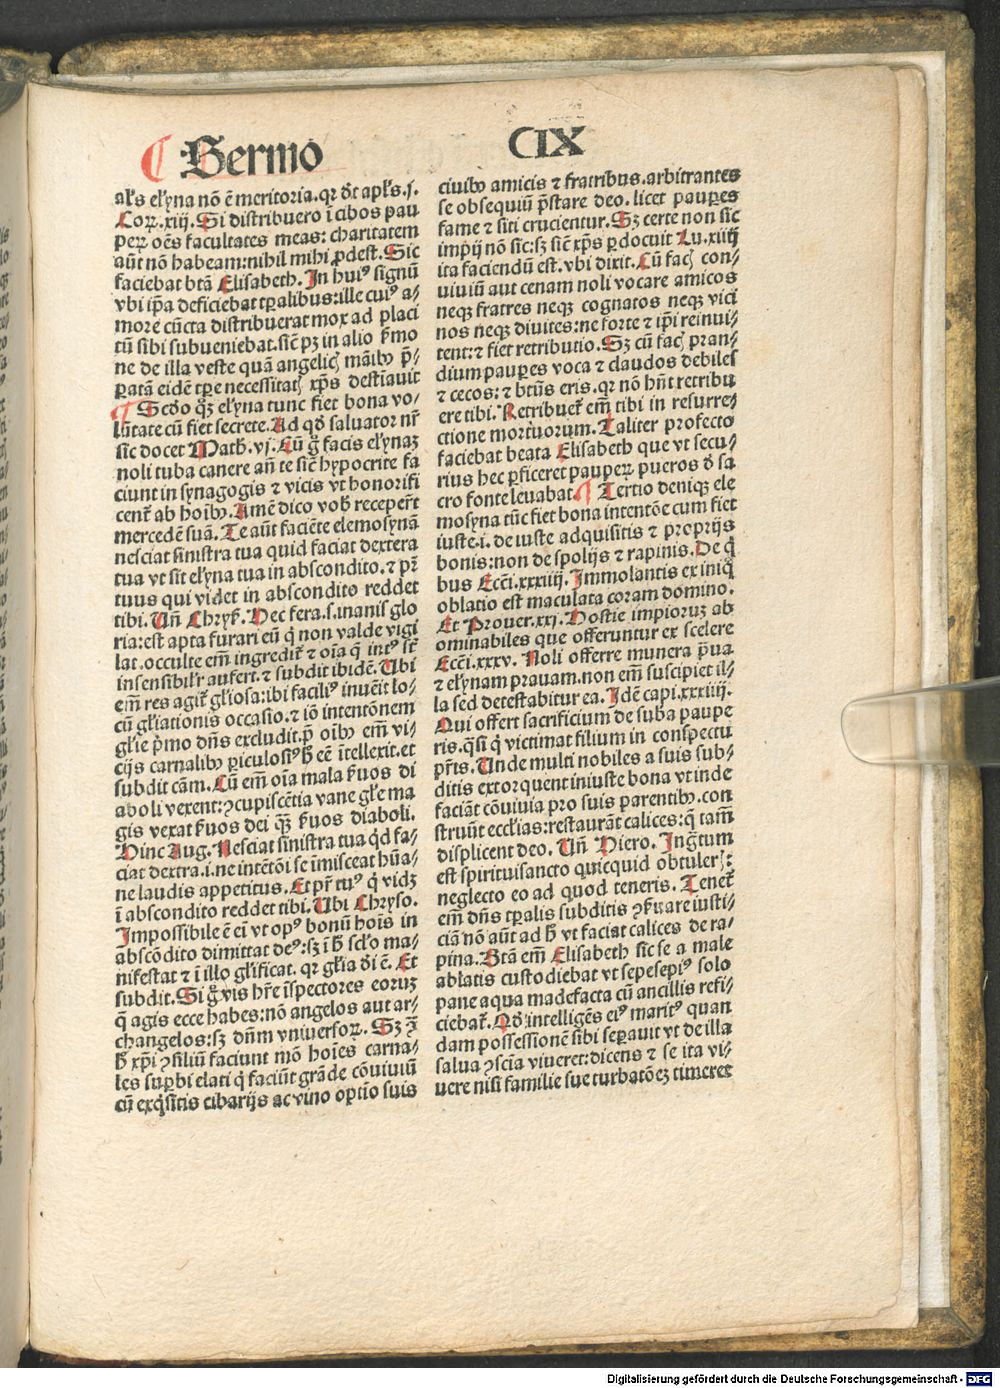 Sermo CIX
al's el'yna nō ē meritoria. qꝛ dīt apl's. j.
Coꝝ. xiij. Si distribuero ī cibos pau
peꝝ oēs facultates meas: charitatem
aūt nō habeam: nihil mihi ꝓdest. Sic
faciebat btā Elisabeth. In huiꝰ signū
vbi ip̄a deficiebat tꝑalibus: ille cuiꝰ a⸗
more cūcta distribuerat mox ad placi
tū sibi subueniebat. sic̄ pꝫ in alio ẜmo
ne de illa veste quā angelicꝭ māibꝰ p̄⸗
paratā eidē tꝑe necessitatꝭ xp̄s destīauit
¶ Scd̄o qꝫ el'yna tunc fiet bona vo⸗
lūtate cū fiet secrete. Ad qd̄ saluator nr̄
sic docet Math. vj. Cū g̊ facis el'ynaꝫ
noli tuba canere an̄ te sic̄ hypocrite fa
ciunt in synagogis ⁊ vicis vt honorifi
cent̄ ab hoībꝰ. Amē dico vob̄ receper̄t
mercedē suā. Te aūt faciēte elemosynā
nesciat sinistra tua quid faciat dextera
tua vt sit el'yna tua in abscondito. ⁊ pr̄
tuus qui videt in abscondito reddet
tibi. Un̄ Chrys̄. Hec fera. s. inanis glo
ria: est apta furari eū q̇ non valde vigi
lat. occulte em̄ ingredit̄ ⁊ oīa q̄ intꝰ st̄
insensibilr̄ aufert. ⁊ subdit ibidē. Ubi
em̄ res agit̄ gl'iosa: ibi faciliꝰ inuēit lo⸗
cū gl'iationis occasio. ⁊ iō intentōnem
gl'ie p̄mo dn̄s excludit. p̄ oībꝰ em̄ vi⸗
cijs carnalibꝰ ꝑiculosiꝰ h̄ eē ītellexit. et
subdit cām. Cū em̄ oīa mala ẜuos di
aboli vexent: ꝯcupiscētia vane gl'e ma
gis vexat ẜuos dei qꝫ ẜuos diaboli.
Hinc Aug. Nesciat sinistra tua qd̄ fa⸗
ciat dextra. i. ne intētōi se īmisceat hūa⸗
ne laudis appetitus. Et pr̄ tuꝰ q̇ vidꝫ
ī abscondito reddet tibi. Ubi Chryso.
Impossibile ē eī vt opꝰ bonū hoīs in
abscōdito dimittat deꝰ: sꝫ ī h̄ scl'o ma⸗
nifestat ⁊ ī illo gl'ificat. qꝛ gl'ia dī ē. Et
subdit. Si g̊ vis hr̄e īspectores eoruꝫ
q̄ agis ecce habes: nō angelos aut ar⸗
changelos: sꝫ dn̄m vniuersoꝝ. Sꝫ ꝯ̄
h̄ xp̄i ꝯsiliū faciunt mō hoīes carna⸗
les suꝑbi elati q̇ faciūt grāde cōuiuiū
cū exq̇sitis cibarijs ac vino optīo suis
ciuibꝰ amicis ⁊ fratribus. arbitrantes
se obsequiū p̄stare deo. licet pauꝑes
fame ⁊ siti crucientur. Sꝫ certe non sic
impij nō sic: sꝫ sic̄ xp̄s ꝑdocuit Lu. xiiij
ita faciendū est. vbi dixit. Cū facꝭ con⸗
uiuiū aut cenam noli vocare amicos
neqꝫ fratres neqꝫ cognatos neqꝫ vici
nos neqꝫ diuites: ne forte ⁊ ip̄i reinui⸗
tent: ⁊ fiet retributio. Sꝫ cū facꝭ pran⸗
dium pauꝑes voca ⁊ claudos debiles
⁊ cecos: ⁊ btūs eris. qꝛ nō hn̄t retribu
ere tibi. Retribuet̄ em̄ tibi in resurre⸗
ctione mortuorum. Taliter profecto
faciebat beata Elisabeth que vt secu⸗
rius hec ꝑficeret pauꝑeꝝ pueros d̄ sa
cro fonte leuabat. ¶ Tertio deniqꝫ ele
mosyna tūc fiet bona intentōe cum fiet
iuste. i. de iuste adquisitis ⁊ proprijs
bonis: non de spolijs ⁊ rapinis. De q̇
bus Ecc̄i. xxxiiij. Immolantis ex iniq̊
oblatio est maculata coram domino.
Et Prouer. xxj. Hostie impioruꝫ ab
ominabiles que offeruntur ex scelere
Ecc̄i. xxxv. Noli offerre munera p̄ua
⁊ el'ynam prauam. non em̄ suscipiet il⸗
la sed detestabitur ea. Idē capi. xxxiiij.
Qui offert sacrificium de suba paupe
ris. q̄si q̇ victimat filium in conspectu
pr̄is. Unde multi nobiles a suis sub⸗
ditis extorquent iniuste bona vt inde
faciāt cōuiuia pro suis parentibꝰ. con
struūt eccl'ias: restaurāt calices: q̄ tam̄
displicent deo. Un̄ Piero. Ingr̄tum
est spirituisancto quicquid obtulerꝭ:
neglecto eo ad quod teneris. Tenet̄
em̄ dn̄s tꝑalis subditis ꝯẜuare iusti⸗
ciā nō aūt ad h̄ vt faciat calices de ra⸗
pina. Btā em̄ Elisabeth sic se a male
ablatis custodiebat vt sepesepiꝰ solo
pane aqua madefacta cū ancillis refi⸗
ciebat̄. Qd̄ intelligēs eiꝰ maritꝰ quan
dam possessionē sibi seꝑauit vt de illa
salua ꝯscīa viueret: dicens ⁊ se ita vi⸗
uere nisi familie sue turbatōeꝫ timeret
Digitalisierung gefördert durch die Deutsche Forschungsgemeinschaft - DFG